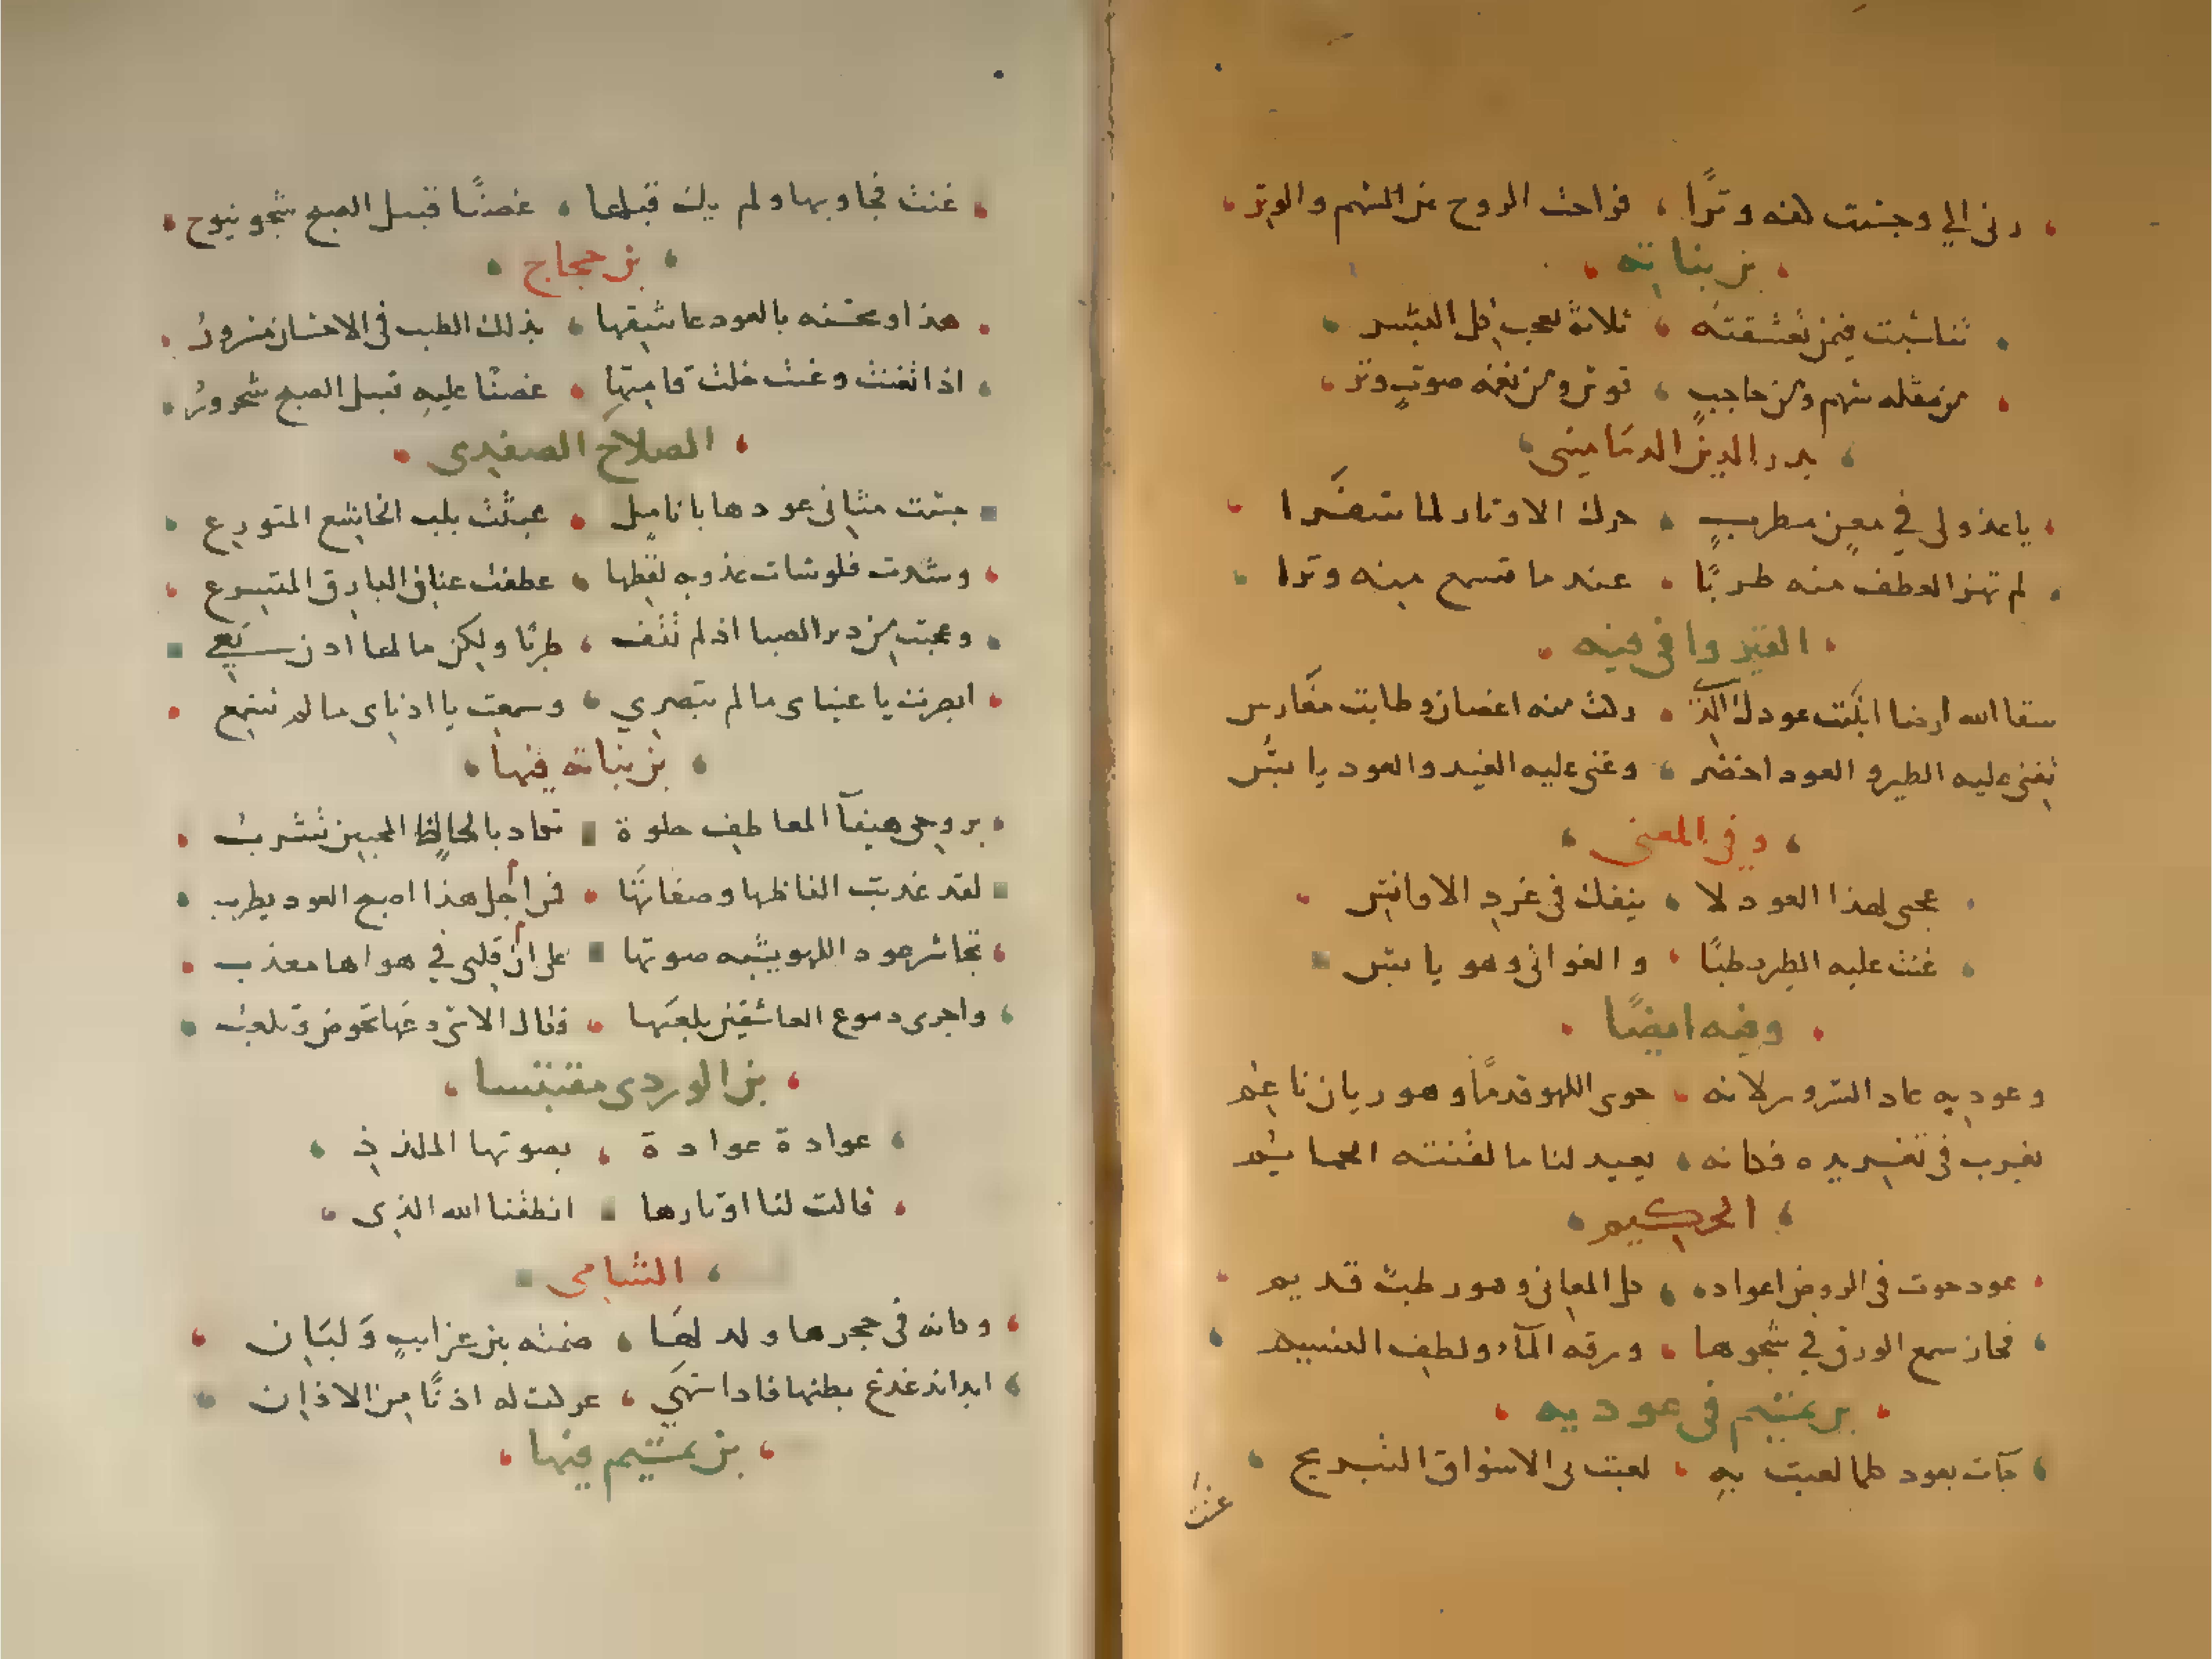 رنى الي وجست لغنه وترًا فراحت الروح بين السهم والوتر
بن نباته
تناسبت فيمن تعشقته ثلاثة تعجب كل البشر
من مقله سهم ومن حاجبٍ قوس ومن نغمه صوتٍ وتر
بدر الدين الدماميني
يا عذولى في مغنٍ مطربٍ حرك الاوتار لما سفرا
لم تهز العطف منه طربًا عندما تسمع منه وترا
القيروا في فيه
سقا الله ارضا انبتت عودك الذي زكت منه اغصان وطابت مغارس
تغنى عليه الطير والعود اخضر وغنى عليه الغيد والعود يابس
وفى المعنى
عجبى لهذا العود لا ينفك فى غرد الاوانس
غنت عليه الطير رطبًا والغوانى وهو يابس
وفيه ايضًا
وعود به عاد السرور لانه حوى اللهو قدمًا وهو ريان ناعم
يغرب فى تغريده فكانه يعيد لنا ما لقنته الحمايم
الحكيم
عود حوت فى الروض اعواده كل المعانى وهو رطب قديم
فحاز سمع الورق في شجوها ورقه المآء ولطف النسيم
بن تميم فى عوديه
جآت بعود كلما لعبت به لعبت بى الاشواق والتبريح
غنت
غنت فجاوبها ولم يك قبلها غصنًا قبيل الصبح شجو ينوح
بن حجاج
هذا ومحسنه بالعود عاشقها بذلك الطيب فى الاحسان مسرورُ
اذا تغنت وغنت خلت قامتها غصنًا عليه قبيل الصبح شحرورُ
الصلاح الصفدى
جست مثانى عودها بانامل عبثت بلب الخاشع المتورع
وشدت فلو شات عذوبه لفظها عطفت عنان البارق المتسرع
وعجبت من دير الصبا اذ لم تقف طربًا ولكن ما لها اذن تعي
ابصرت يا عيناى ما لم تبصري وسمعت يا اذناى ما لم تسمع
بن نباته فيها
بروحى هيفآ المعاطف حلوة تكاد بالحاظ المحبين تشرب
لقد عذبت الفاظها وصفاتها فمن اجل هذا اصبح العود يطرب
تجاسر عود اللهو يشبه صوتها على ان قلبى في هواها معذب
واجرى دموع العاشقين بلعبها فقال الاسى دعها تخوض وتلعب
بن الوردى مقتبسا
عوادة عوادة بصوتها الملذذ
قالت لنا اوتارها انطقنا الله الذى
الشامى
وكانه فى حجرها ولد لها ضمته بين ترايبٍ ولبان
ابدا تدغدغ بطنها فاذا انتهى عركت له اذنًا من الاذان
بن تميم فيها